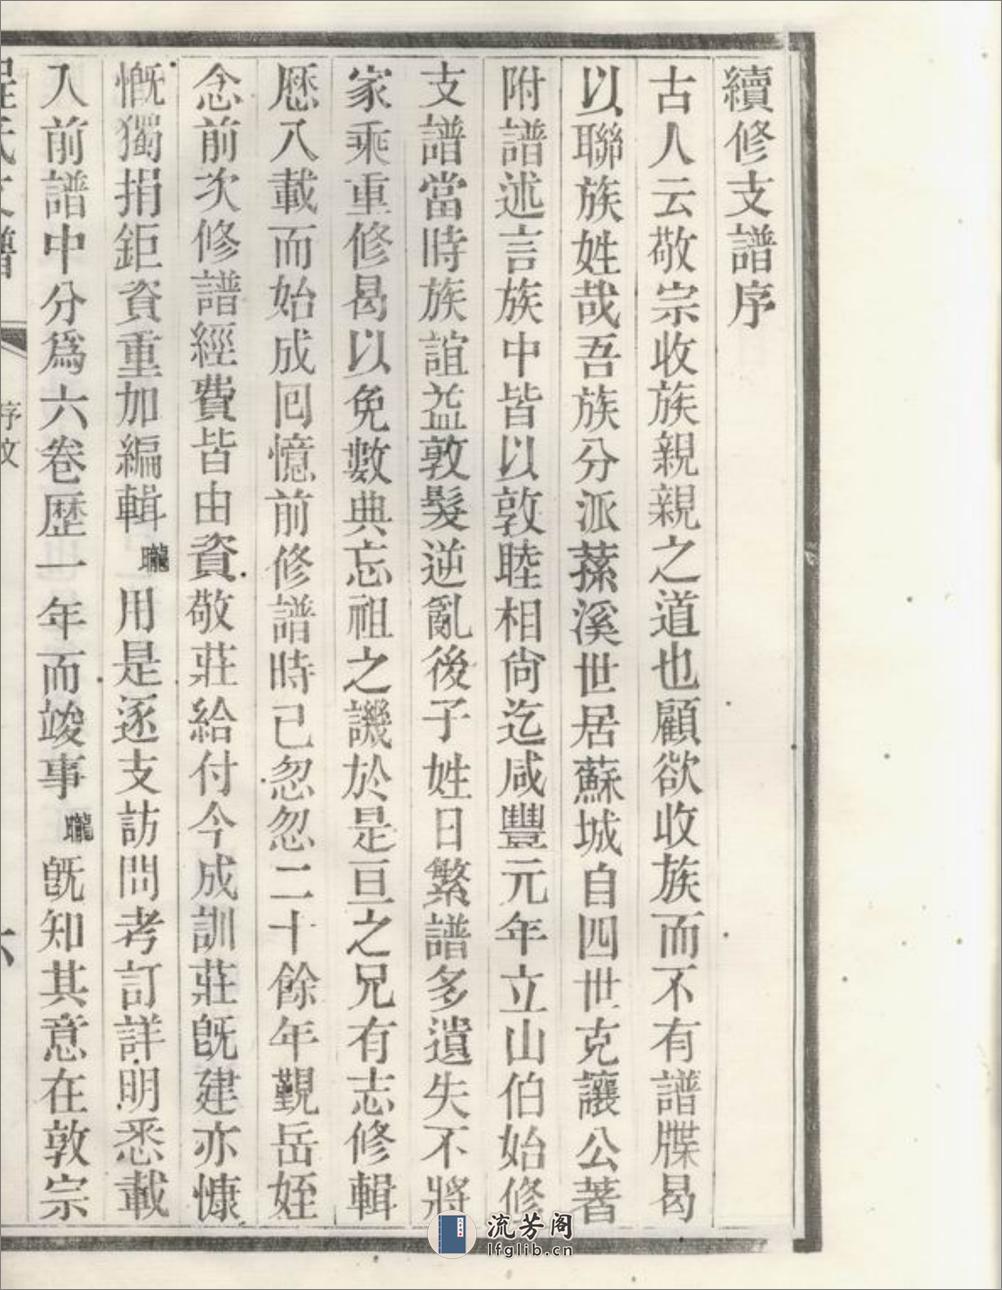 續修支譜序
古人云敬宗收族親親之道也顧欲收族而不有譜牒曷
以聯族姓哉吾族分派蓀溪世居蘇城自四世克讓公著
附譜述言族中皆以敦睦相尙迄咸豐元年立山伯始修
支譜當時族誼益敦髮逆亂後子姓日繁譜多遺失不將
家乘重修曷以免數典忘祖之譏於是亘之兄有志修輯
歷八載而始成回憶前修譜時已忽忽二十餘年觐岳姪
念前次修譜經費皆由資敬莊給付今成訓莊旣建亦慷
慨獨捐鉅資重加編輯曨用是逐支訪問考訂詳明悉載
入前譜中分爲六卷歷一年而竣事曨旣知其意在敦宗
程氏支譜
序文
六
流芳阁
lfglib.cn